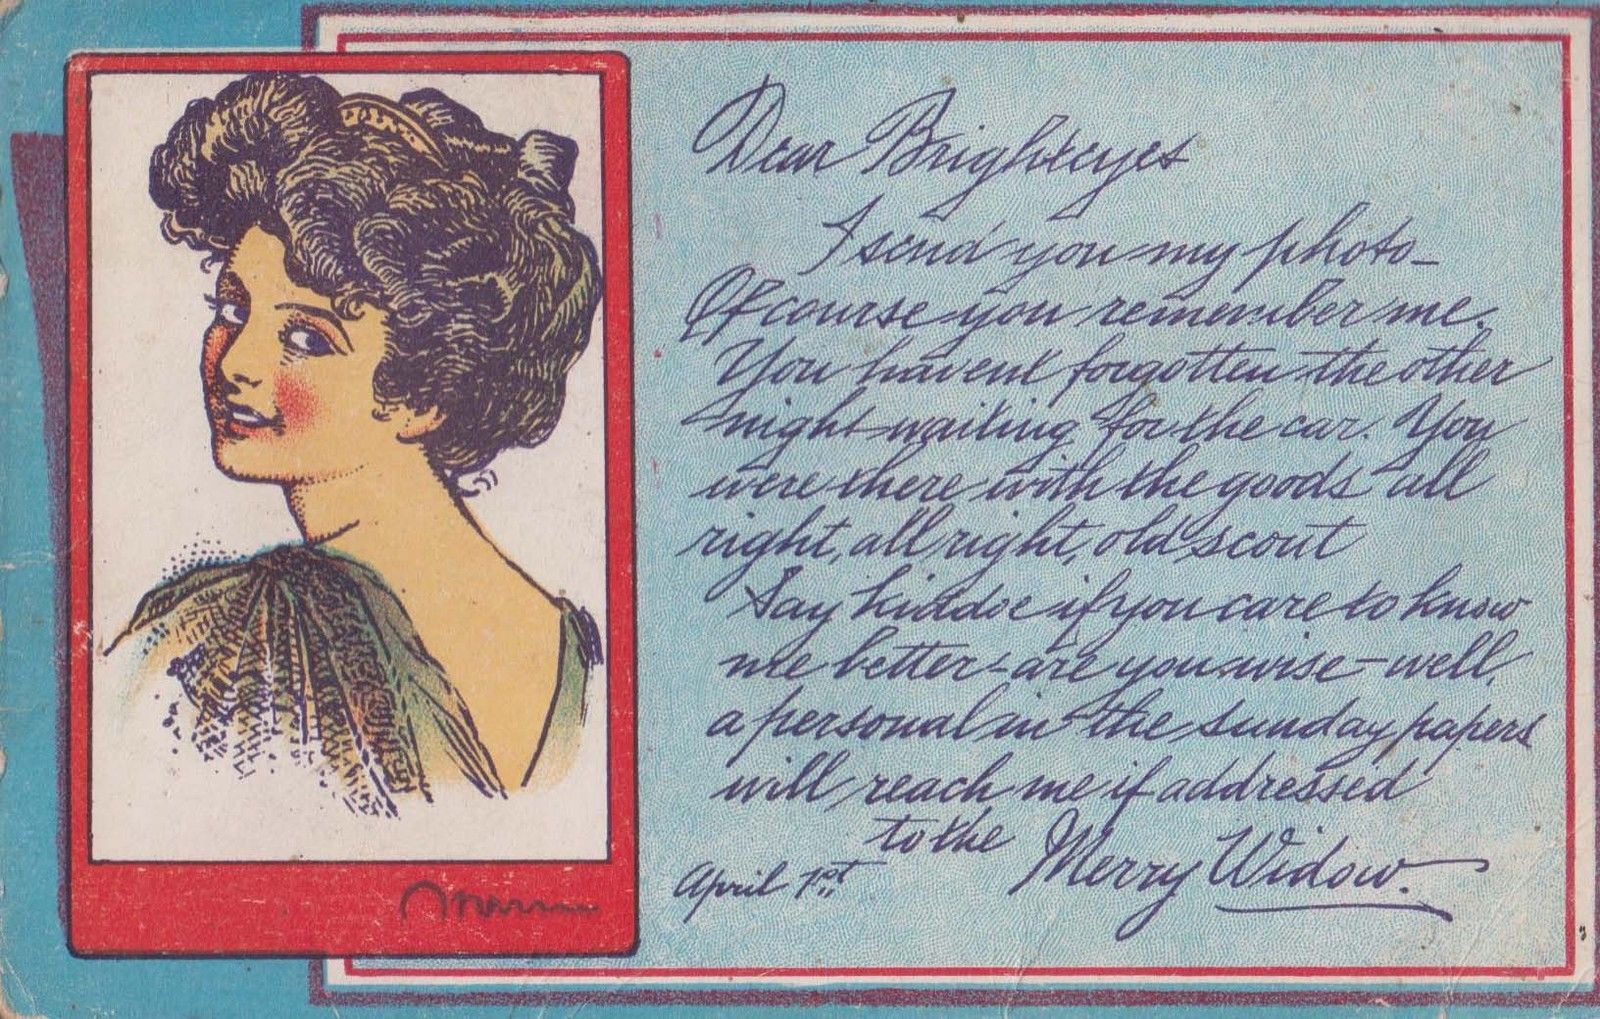 Dear Brighteyes
I send you my photo-
Of course you remember me.
You havent forgotten the other
night waiting for the car. You
were there with the goods all
right, all right, old scout
Say kiddoe if you care to know
me better-are you wise-well,
a personal in the Sunday papers
will reach me if addressed
to the Merry Widow.
April 1st